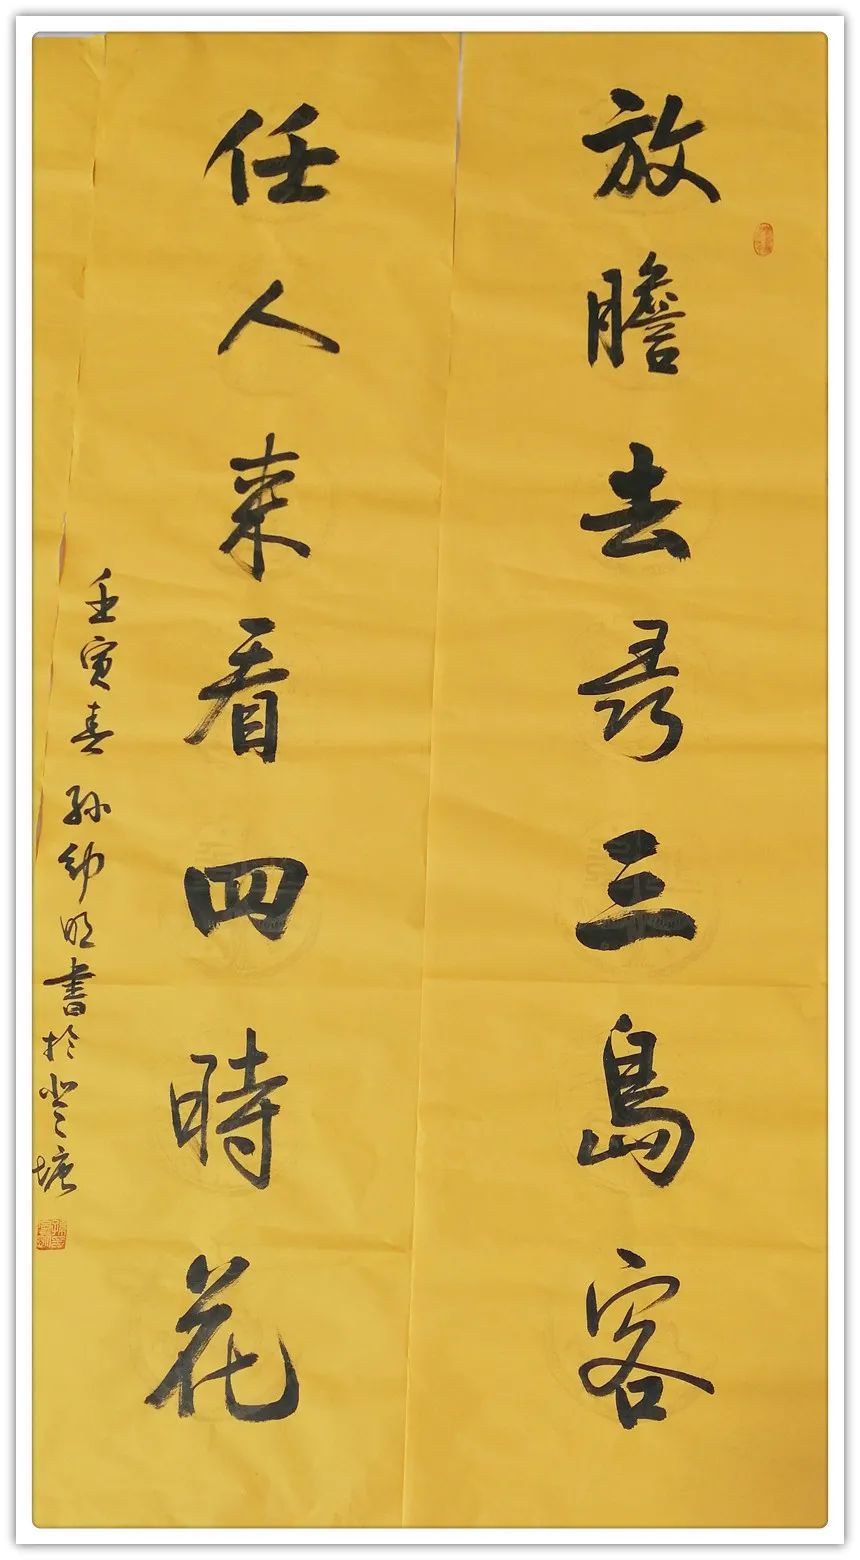 放膽去尋三島客
任人来看四時花
壬寅春孫幼明書於登塘